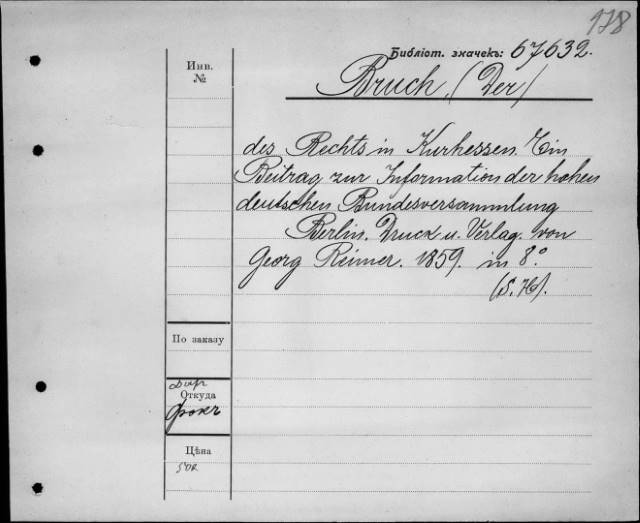 178
Библіот. значекъ: 67632.
Инв. №
Bruch, (Der)
des Rechts in Kurhessen. Ein
Beitrag zur Information der hohen
deutschen Bundesversammlung
Berlin. Druck u. Verlag. von
Georg Reimer. 1859. in 8°.
По заказу
Откуда
Цѣна